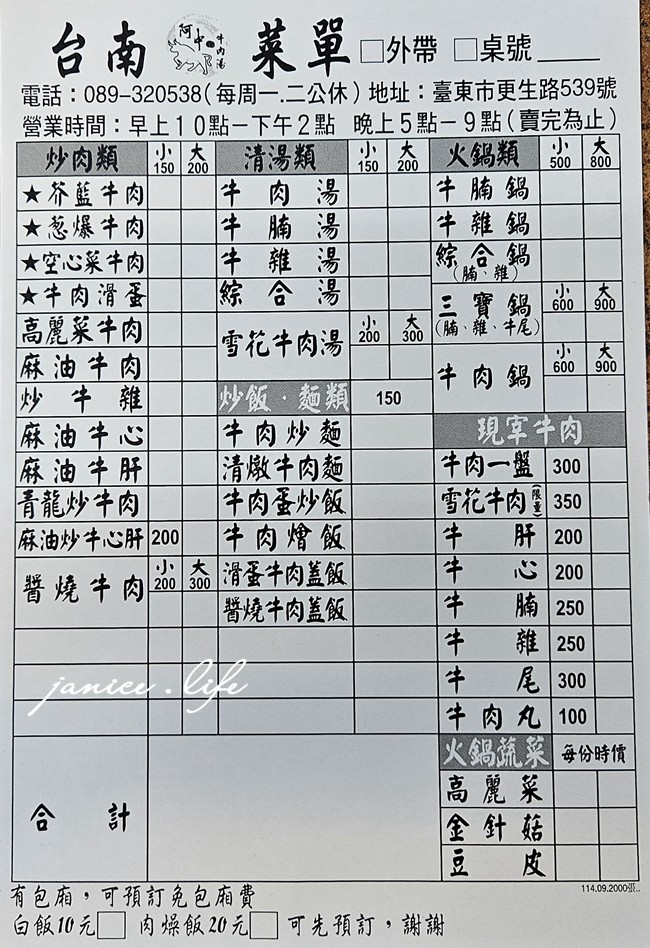 台南 阿中 牛肉湯 菜單 □外帶 □桌號____
電話：089-320538(每周一.二公休) 地址：臺東市更生路539號
營業時間：早上10點－下午2點 晚上5點－9點(賣完為止)
炒肉類 小150 大200
★芥藍牛肉
★葱爆牛肉
★空心菜牛肉
★牛肉滑蛋
高麗菜牛肉
麻油牛肉
炒牛雜
麻油牛心
麻油牛肝
青龍炒牛肉
麻油炒牛心肝 200
醬燒牛肉 小200 大300
合計
清湯類 小150 大200
牛肉湯
牛腩湯
牛雜湯
綜合湯
雪花牛肉湯 小200 大300
炒飯．麵類 150
牛肉炒麵
清燉牛肉麵
牛肉蛋炒飯
牛肉燴飯
滑蛋牛肉蓋飯
醬燒牛肉蓋飯
火鍋類 小500 大800
牛腩鍋
牛雜鍋
綜合鍋
(腩、雜)
三寶鍋 小600 大900
(腩、雜、牛尾)
牛肉鍋 小600 大900
現宰牛肉
牛肉一盤 300
雪花牛肉(限量) 350
牛肝 200
牛心 200
牛腩 250
牛雜 250
牛尾 300
牛肉丸 100
火鍋蔬菜 每份時價
高麗菜
金針菇
豆皮
janice.life
114.09.2000張..
有包廂，可預訂免包廂費
白飯10元□ 肉燥飯20元□ 可先預訂，謝謝